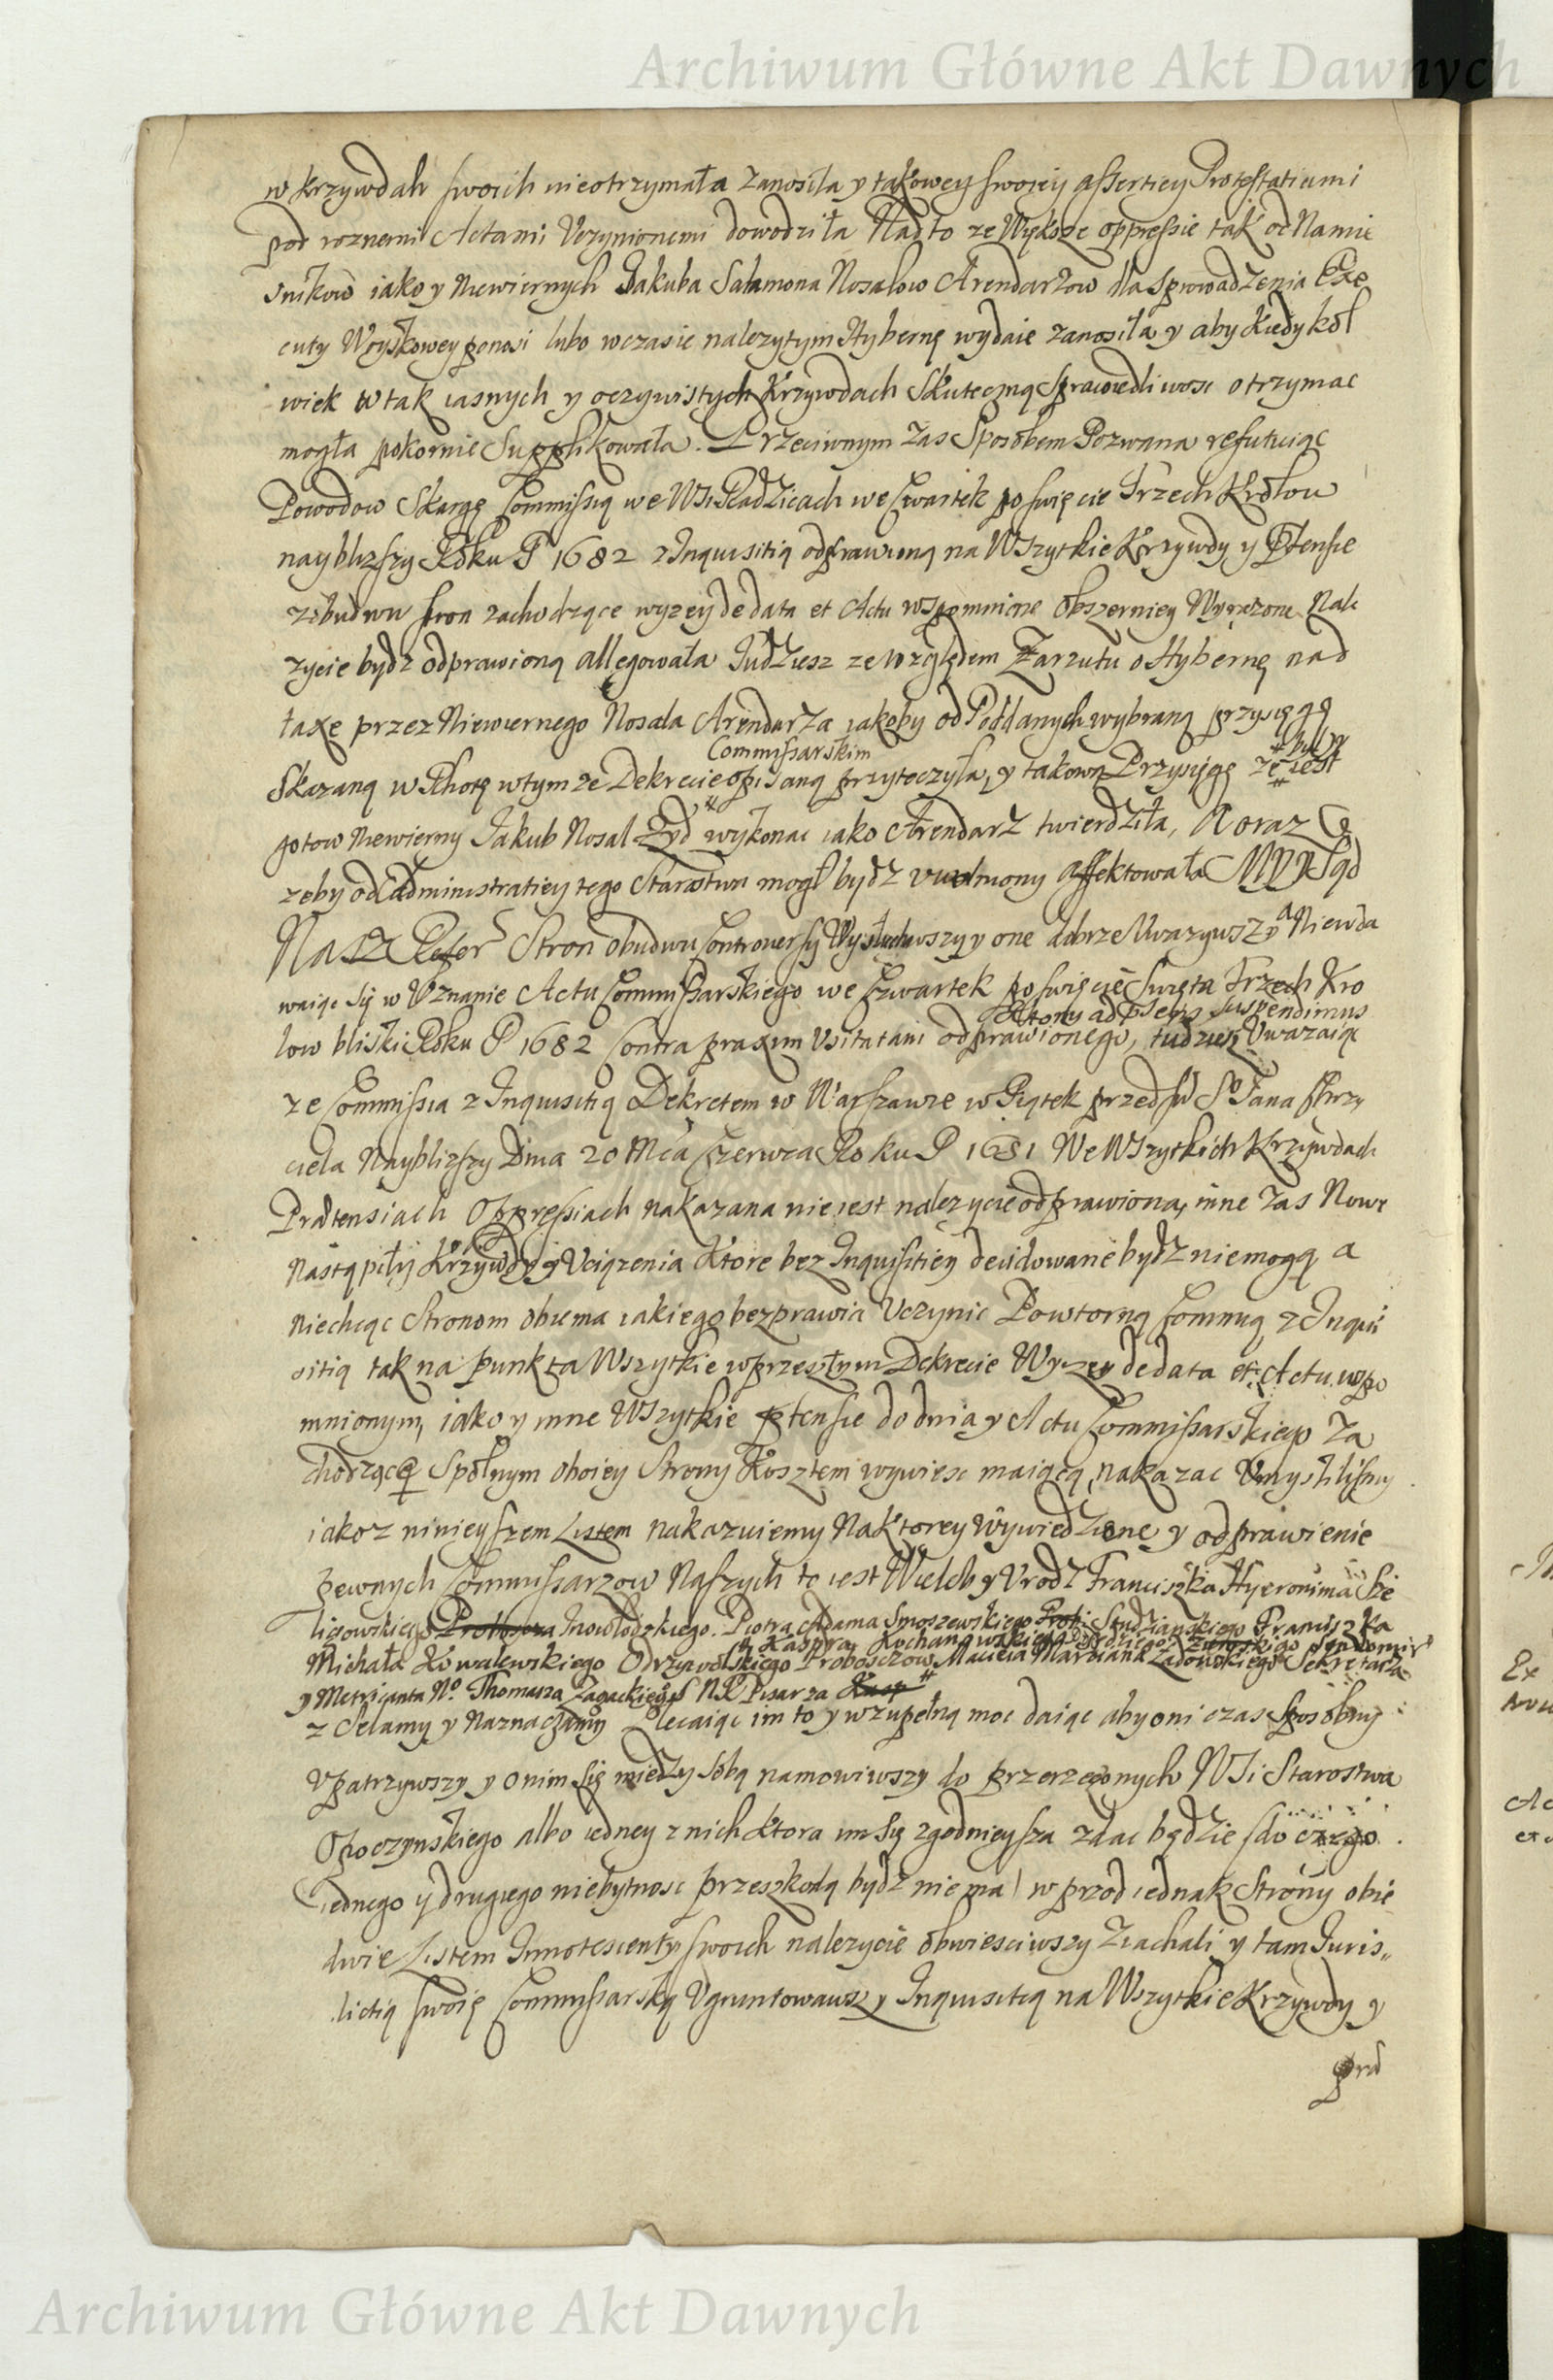 Archiwum Główne Akt Dawnych
w krzywdah swoich nieotrzymała zanosiła y takowey swoiey assertiey Protestatiami
pod roznemi Actami Vczynionemi dowodziła Nad to ze Wyksze oppressie tak od Namie
snikow iako y Niewiernych Jakuba Salamona Nosalow Arendarzow dla sprowadzenia Exe
cuty Woyskowey ponosi lubo wczasie nalezytym Hybernę wydaie zanosiła y aby kiedy kol
wiek w tak iasnych y oczywistych Krzywdach Skuteczną Sprawiedliwosc otrzymac
mogła pokornie Supplikowała. Przeciwnym zas Sposobem Pozwana refutuiąc
Powodow Skargę Commissią we Wsi Radzicach we Czwartek po swięcie Trzech Krolow
nayblizszy Roku P 1682 z Inquisitią odprawioną na Wszytkie Krzywdy y Ptensie
z obudwu stron zachodzące wyzey de data et Actu wspomnione obszerniey Wyrazone Nale
zycie bydz odprawioną allegowała Tudziesz ze względem Zarzutu o Hybernę nad
taxę przez Niewiernego Nosala Arendarza iakoby od Poddanych wybraną przysięgę
Commissarskim
Skazaną w Rhotę wtym ze Dekrecie opisaną przytoczyła, y takową Przysięgę ze iest
gotow Niewierny Jakub Nosal Zyd wykonac iako Arendarz twierdziła, A oraz
zeby od Administratiey tego Starostwa mogł bydz uwolniony affektowała MY y Sąd
Nasz Refer Stron obudwu Controversy Wysłuchawszy y one dobrze Uwazywszy a Niewda
waiąc się w Vznanie Actu Commissarskiego we Czwartek po swięcie Swięta Trzech Kro
suspendimus
low bliski Roku P 1682 Contra praxim Vsitatam odprawionego, tudziesz Uwazaiąc
ze Commissia z Inquisitią Dekretem w Warszawie w Piątek przed Sw S Jana Chrzy
ciela Nayblizszy Dnia 20 Mca Czerwca Roku P 1681 We Wszytkich Krzywdach
Praetensiach Oppressiach nakazana nie iest nalezycie odprawiona, inne zas Nowe
Nastąpiły Krzywdy y Vciązenia Ktore bez Inquisitiey decidowane bydz niemogą a
Niechcąc Stronom obiema iakiego bezprawia Vczynic Powtorną Commią z Inqui
sitią tak na punkta Wszytkie wprzeszłym Dekrecie Wyzey de data et Actu wspo
mnionym, iako y inne Wszytkie ptensie do dnia y Actu Commissarskiego Za
chodzące Spolnym oboiey Strony Kosztem wywiesc maiącą, nakazac Vmyslilismy
iakoz ninieyszem Listem nakazuiemy Na Ktorey Wywiedzienie y odprawienie
pewnych Commissarzow Naszych to iest Wielch y Vrodz Franciszka Hyeronima Sie
ligowskiego Inowłodzkiego. Piotra Adama Smoszewskiego Studzianskiego Franciszka
Kaspra Kochanowskiego
Michała Kowalewskiego Odrzywolskiego Proboszczow Macieia Marciana Ładowskiego Sekretarza
y Metricanta No. Thomasza Zagackiego NR Pisarza
z Selamy y Naznaczamy Zlecaiąc im to y wzupełną moc daiąc aby oni czas Sposobny
Vpatrzywszy y onim Się miedzy sobą namowiwszy do przerzeczonych Wsi Starostwa
Opoczynskiego albo iedney z nich Ktora im Się zgodnieysza zdac będzie (do czego
iednego y drugiego niebytnosc przeszkodą bydz nie ma) w przod iednak Strony obie
dwie Listem Innotescentiy swoich nalezycie obwiesciwszy Ziachali y tam Iuris„
dictią swoię Commissarską Vgruntowawszy Inquisitią na Wszytkie Krzywdy y
prae
Archiwum Główne Akt Dawnych